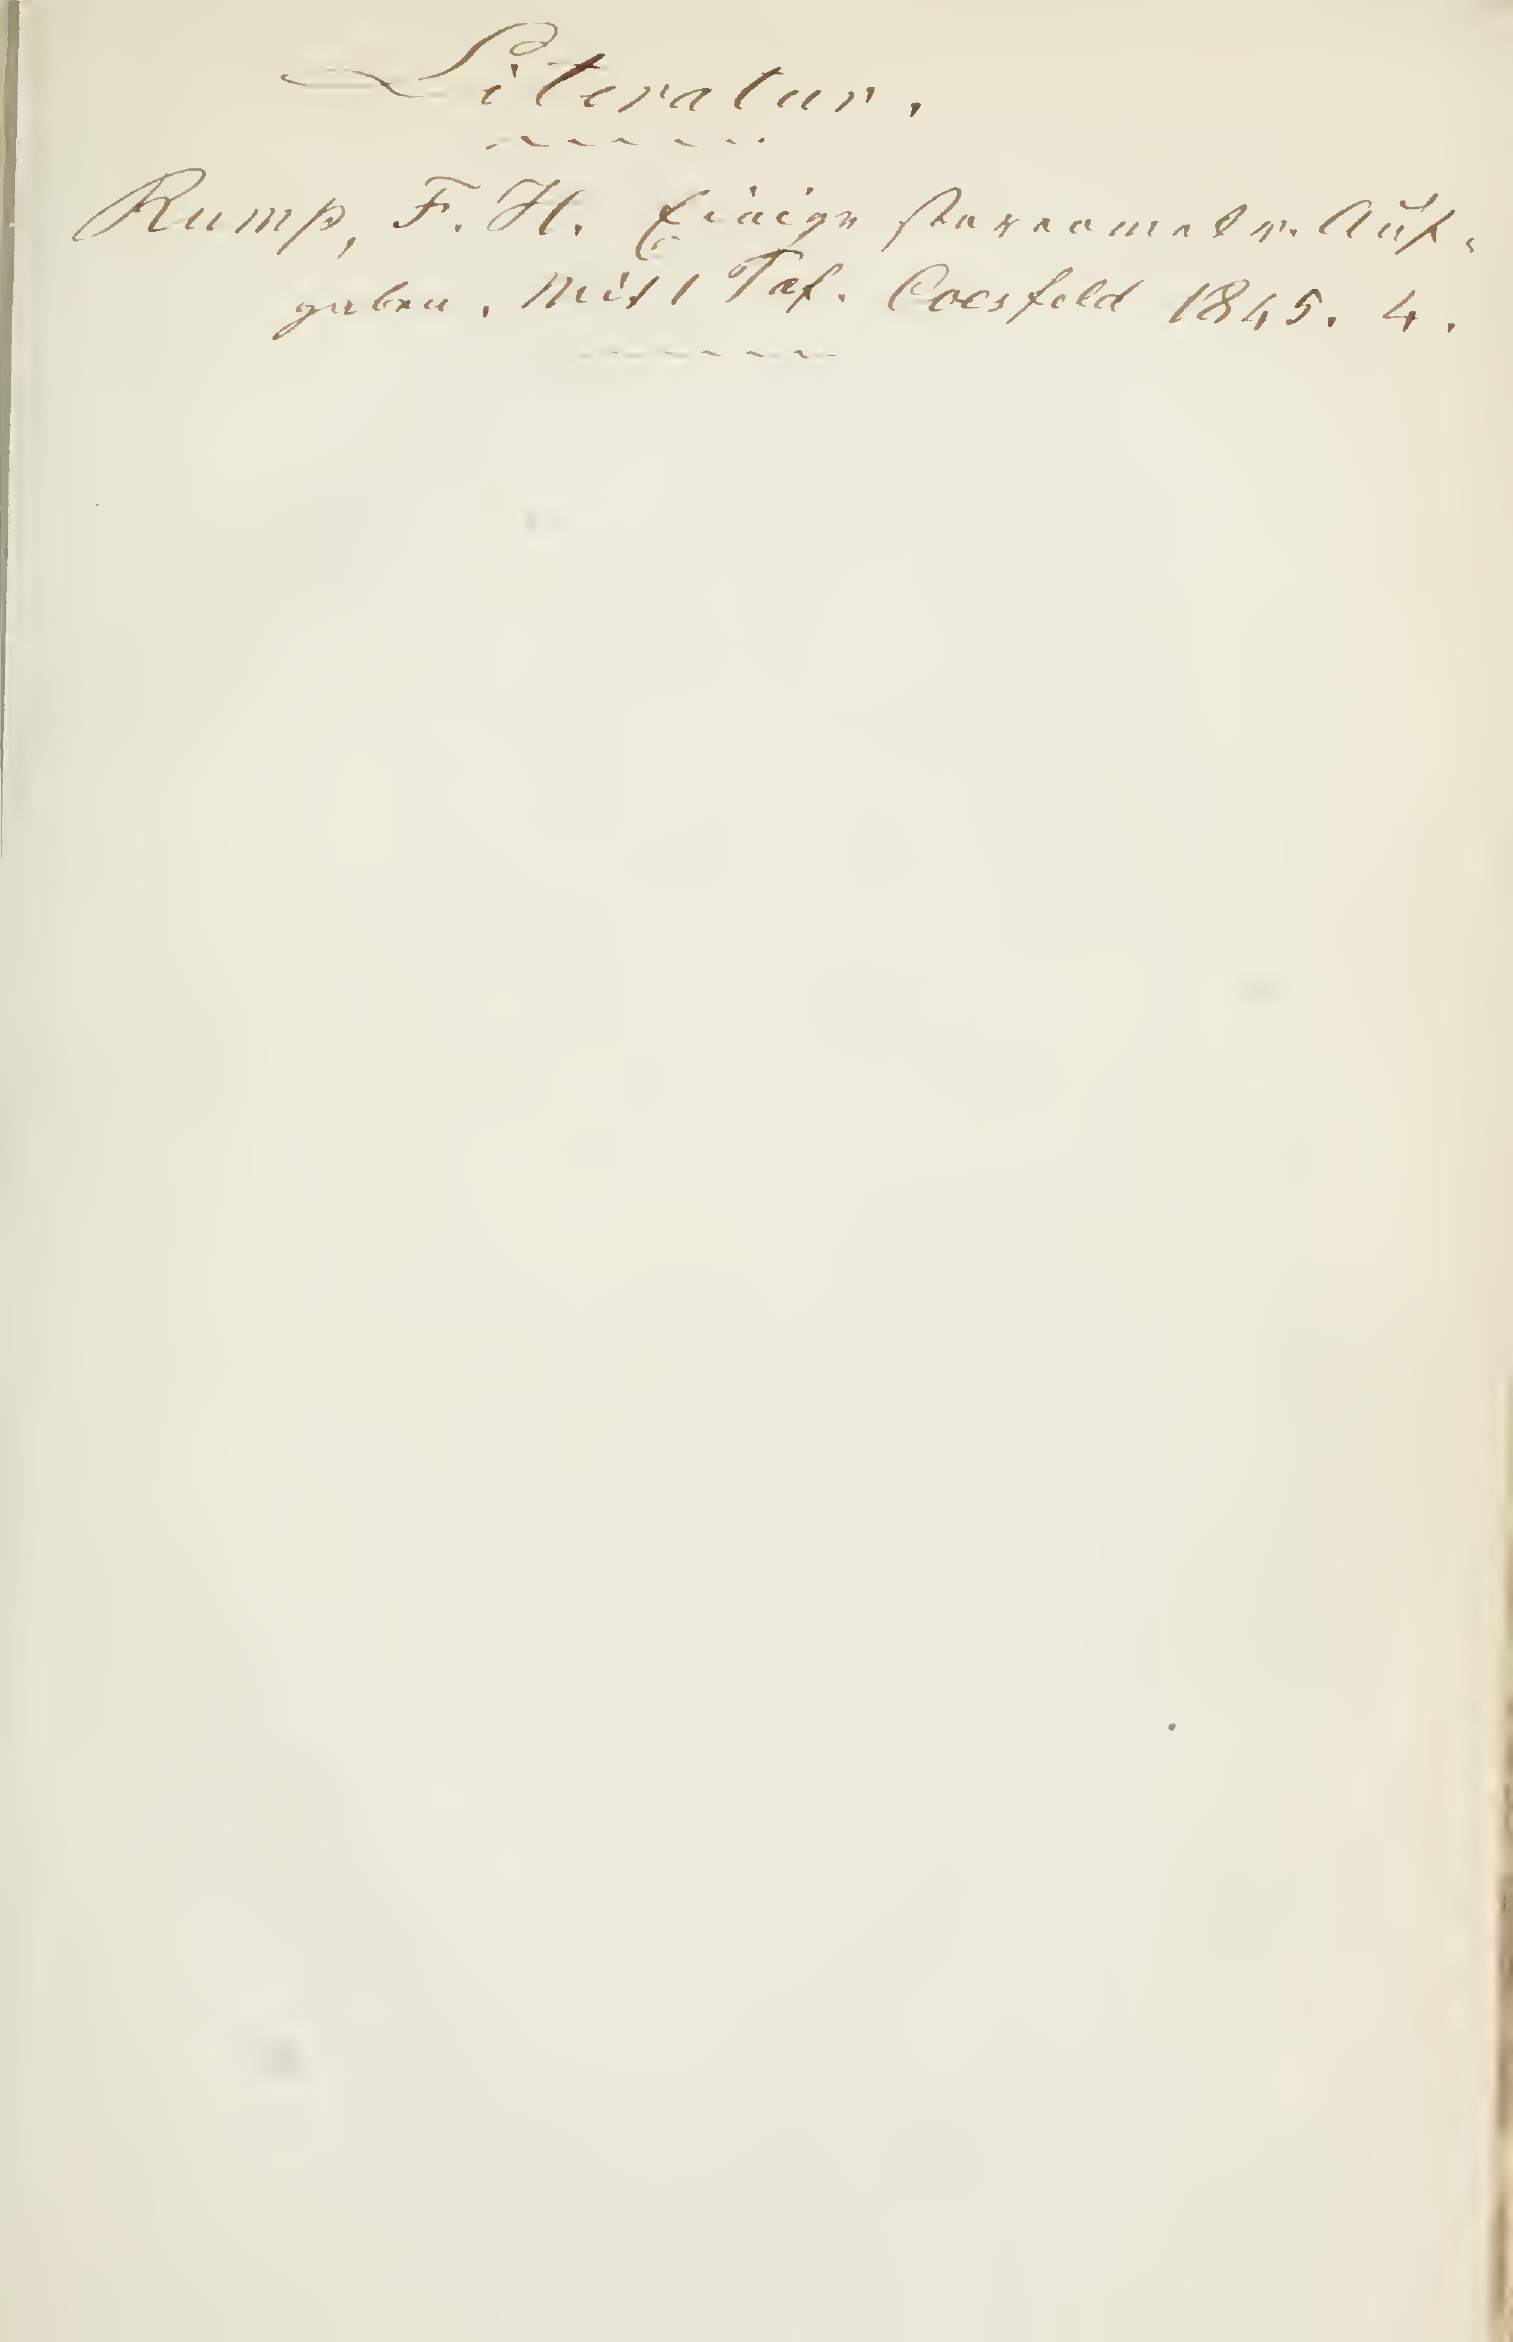 Literatur.
Rump, F. H. Einige stereometr. Auf-
gaben. Mit 1 Taf. Coesfeld 1845. 4.